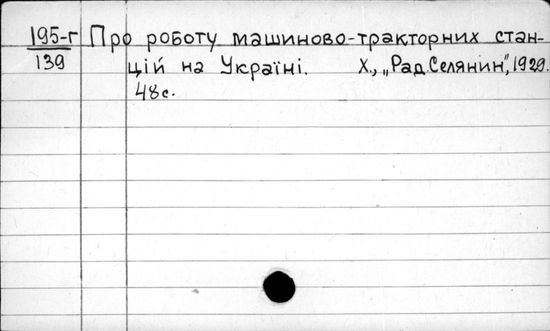 195-г Про роботу машиново-тракторних стан-
139 цій на Україні. Х., „Рад.Селянин", 1929.
48с.